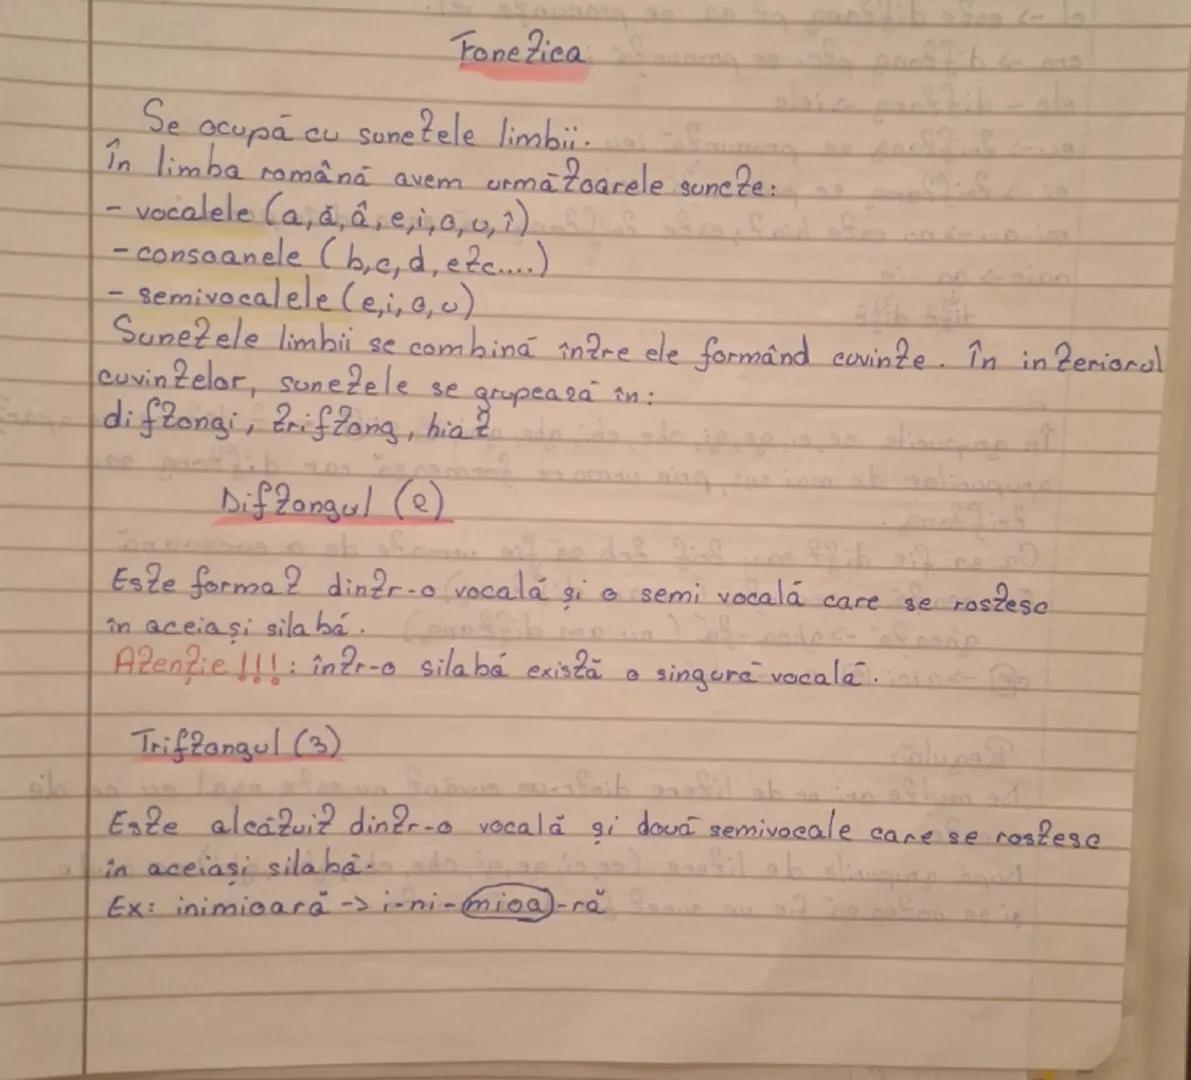 Fonetica
Se ocupă cu sunetele limbii.
În limba română avem următoarele sunete:
- vocalele (a, ă, â, e, i, o, u, î)
- consoanele (b, c, d, etc....)
- semivocalele (e, i, o, u)
Sunetele limbii se combină între ele formând cuvinte. În interiorul
cuvintelor, sunetele se grupează în:
diftongi, triftong, hiat
Diftongul (2)
Este format dintr-o vocală și o semi vocală care se rostesc
în aceiași silabă.
Atenție!!!: într-o silabă există o singură vocală.
Triftongul (3)
Este alcătuit dintr-o vocală și două semivocale care se rostesc
în aceiași silabă.
Ex: inimioară -> i-ni-mioa-ră